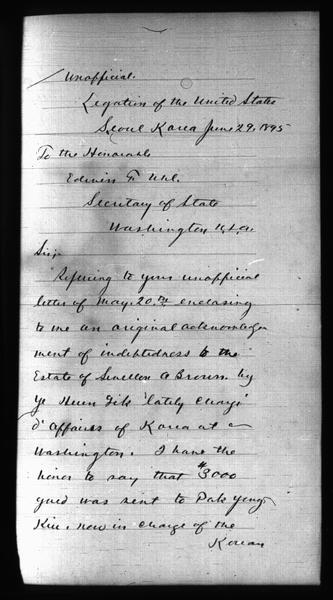 Unofficial.
Legation of the United States
Seoul Korea June 29, 1895
To the Honorable
Edwin F Uhl.
Secretary of State
Washington U.S.A.
Sir;
Refering to your unofficial
letter of May 20th enclosing
to me an original acknowledge
ment of indebtedness to the
Estate of Sevellon A Brown. by
Ye Huen Jik 'lately Chargé
d' Affaires of Korea at
Washington. I have the
honor to say that $3000
yued was sent to Pak Yong
Kiu. now in charge of the
Korean